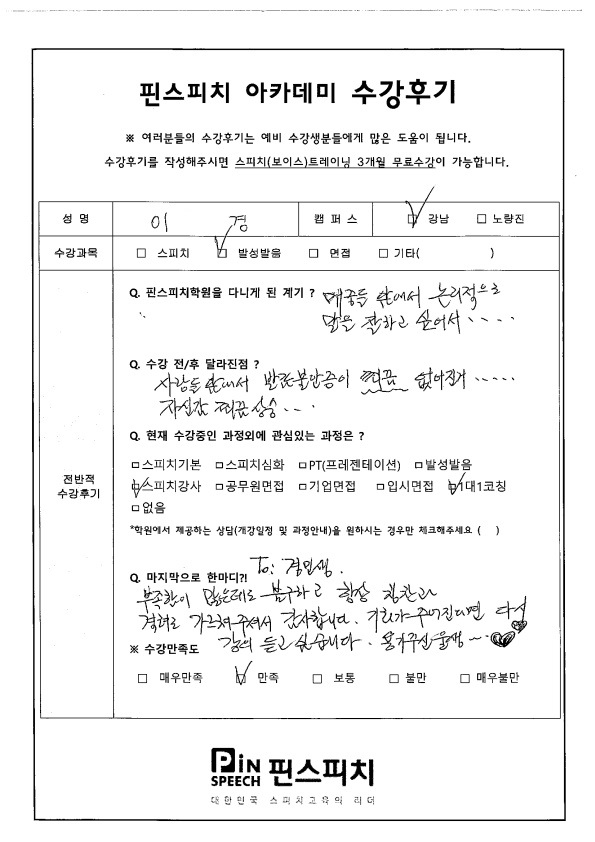 핀스피치 아카데미 수강후기
※ 여러분들의 수강후기는 예비 수강생분들에게 많은 도움이 됩니다.
수강후기를 작성해주시면 스피치(보이스)트레이닝 3개월 무료수강이 가능합니다.
성 명 이 경 캠 퍼 스 ☑ 강남 □ 노량진
수강과목 □ 스피치 ☑ 발성발음 □ 면접 □ 기타( )
Q. 핀스피치학원을 다니게 된 계기 ? 대중들 앞에서 논리적으로
말을 잘하고 싶어서....
Q. 수강 전/후 달라진점 ?
사람들 앞에서 발표불안증이 쬐끔 없어진거.....
자신감 쬐끔 상승...
Q. 현재 수강중인 과정외에 관심있는 과정은 ?
□스피치기본 □스피치심화 □PT(프레젠테이션) □발성발음
전반적
수강후기
☑스피치강사 □공무원면접 □기업면접 □입시면접 ☑1대1코칭
□없음
*학원에서 제공하는 상담(개강일정 및 과정안내)을 원하시는 경우만 체크해주세요 ( )
To: 경민샘.
Q. 마지막으로 한마디?!
부족함이 많은데도 불구하고 항상 칭찬과
격려로 가르쳐주셔서 감사합니다. 기회가 주어진다면 다시
강의 듣고 싶습니다.
※ 수강만족도
□ 매우만족 ☑ 만족 □ 보통 □ 불만 □ 매우불만
PiN SPEECH 핀스피치
대한민국 스피치교육의 리더